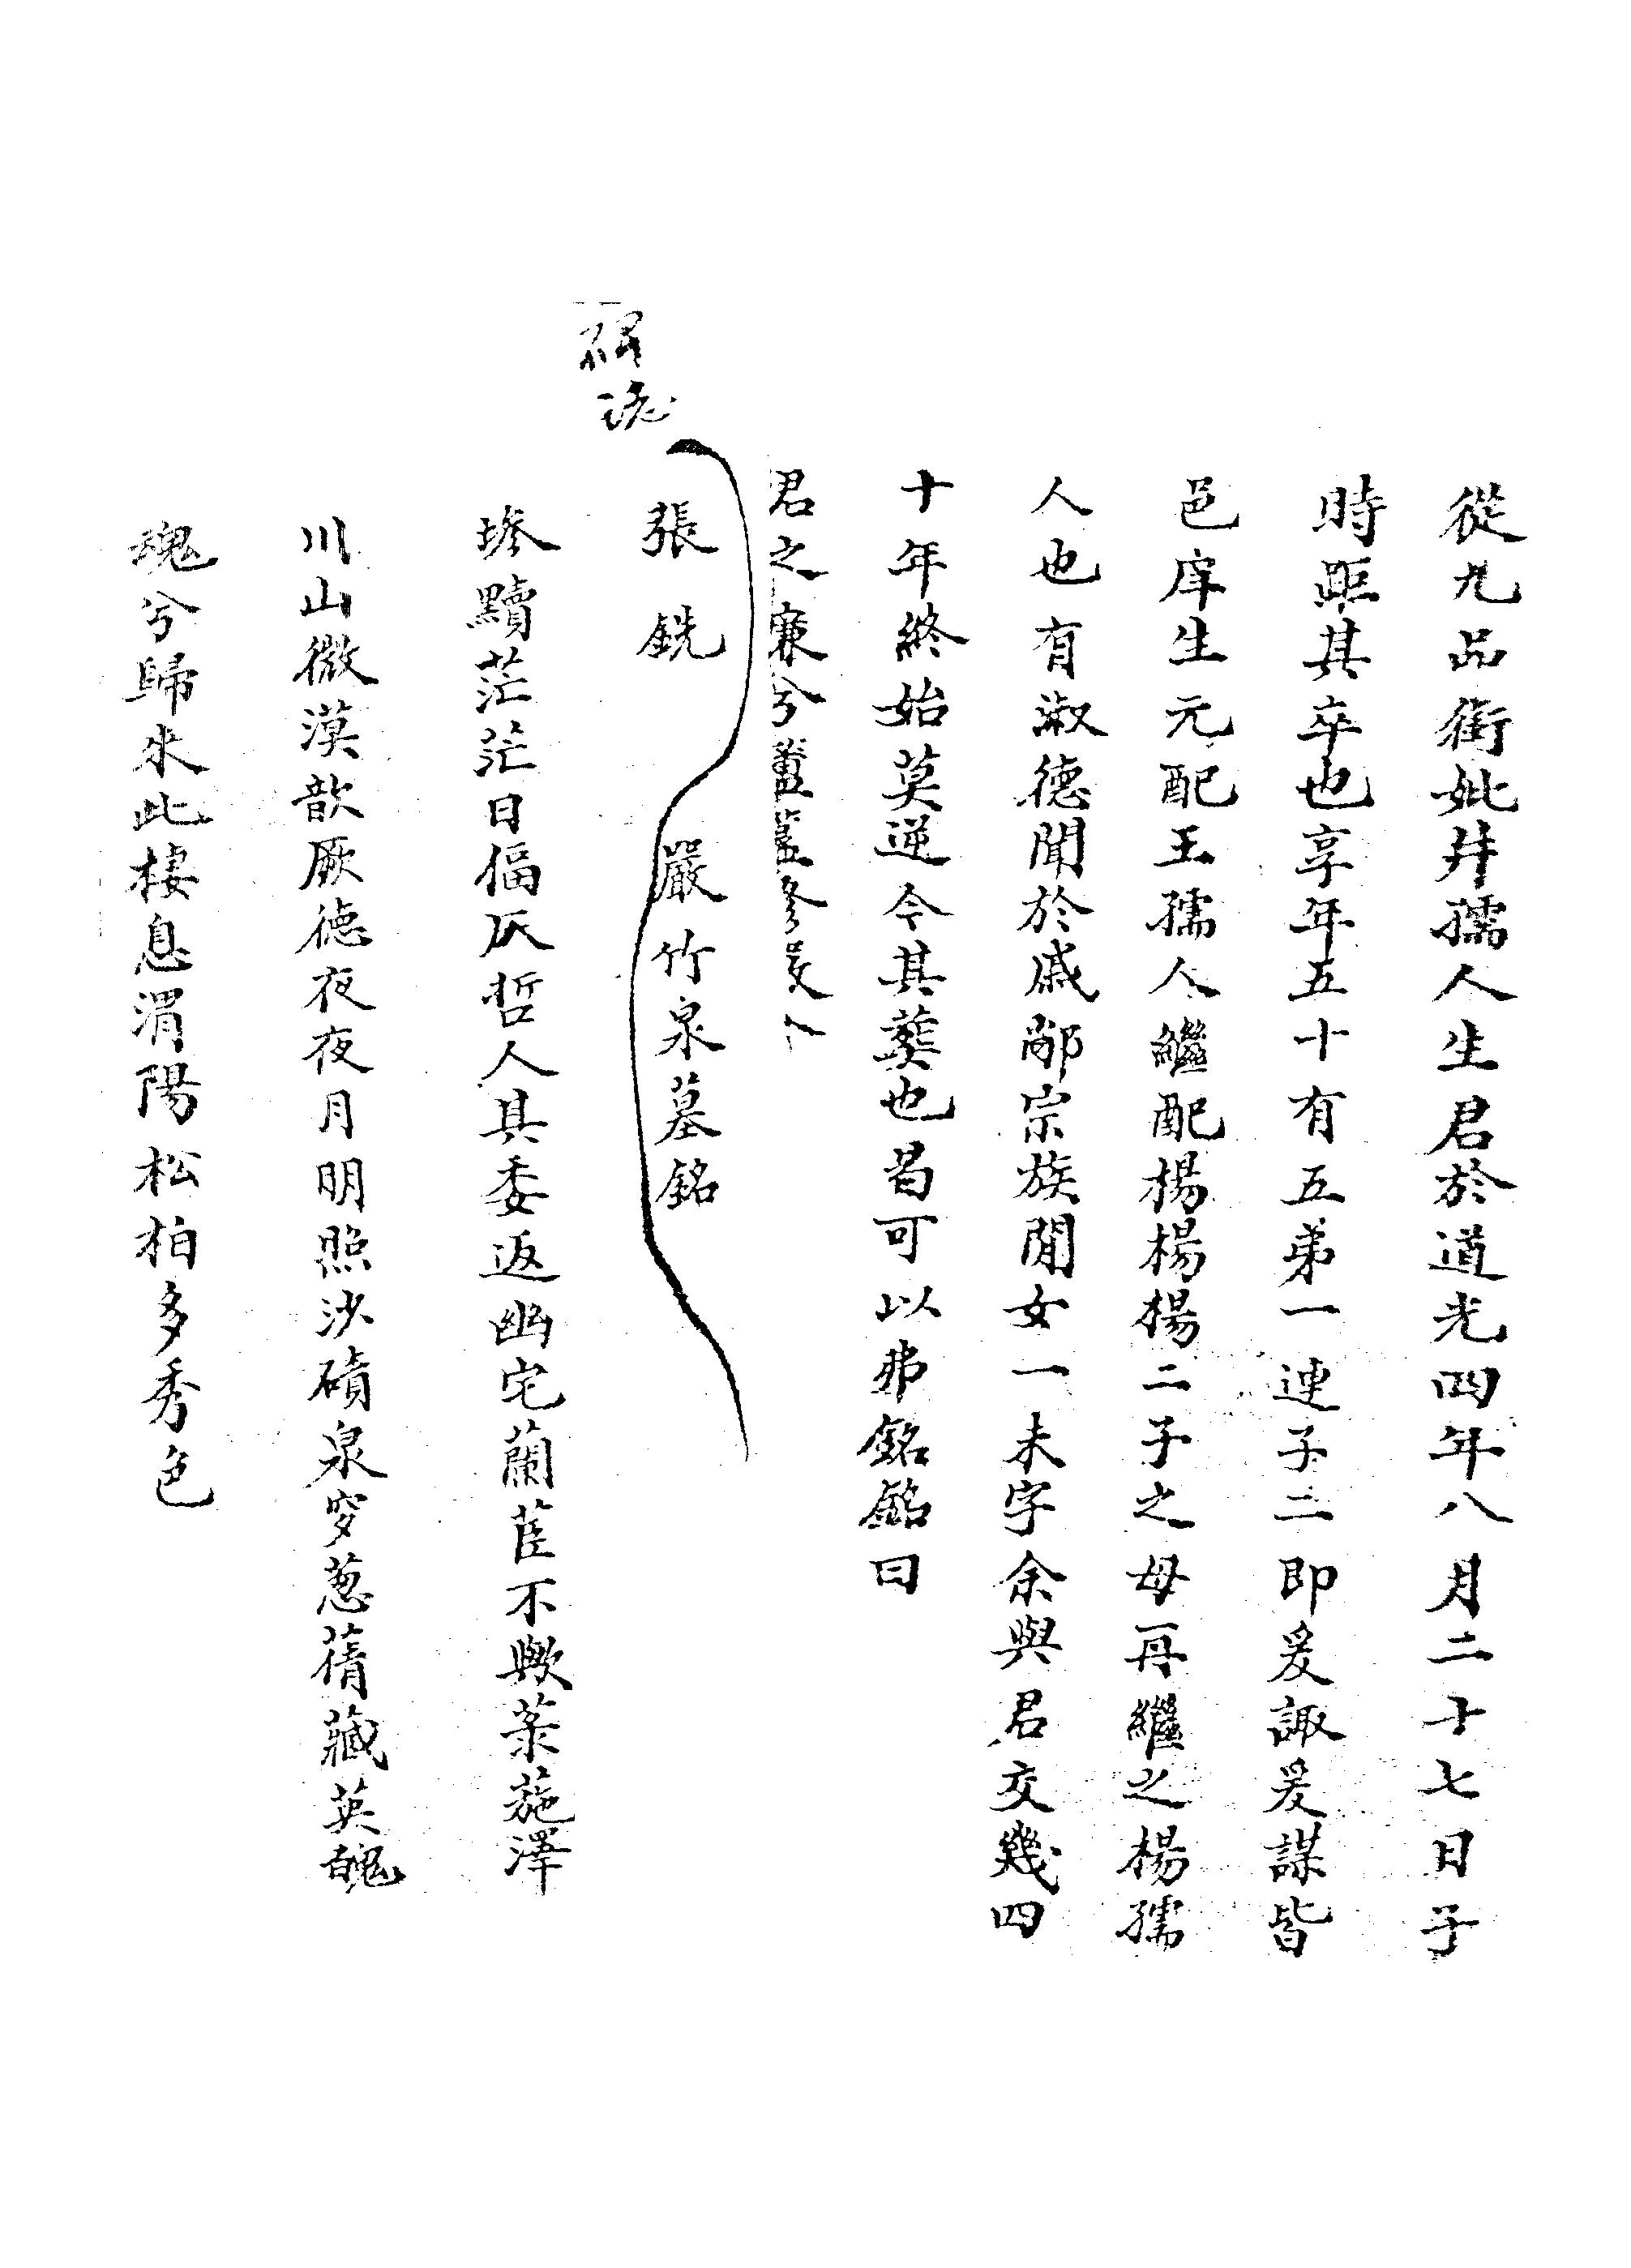 從九品銜妣井孺人生君於道光四年八月二十七日子
時距其卒也享年五十有五弟一連子二即爰諏爰謀皆
邑庠生元配王孺人繼配楊楊楊二子之母再繼之楊孺
人也有淑德聞於戚鄰宗族閒女一未字余與君交幾四
十年終始莫逆今其葬也曷可以弗銘銘曰
君之兮
碑誌
張銑 嚴竹泉墓銘
墋黷茫茫日偪仄哲人其委返幽宅蘭茝不歟葹澤
川山微漠歆厥德夜夜月明照沙磧泉穸葱蒨藏英魄
魂兮歸來此棲息渭陽松柏多秀色